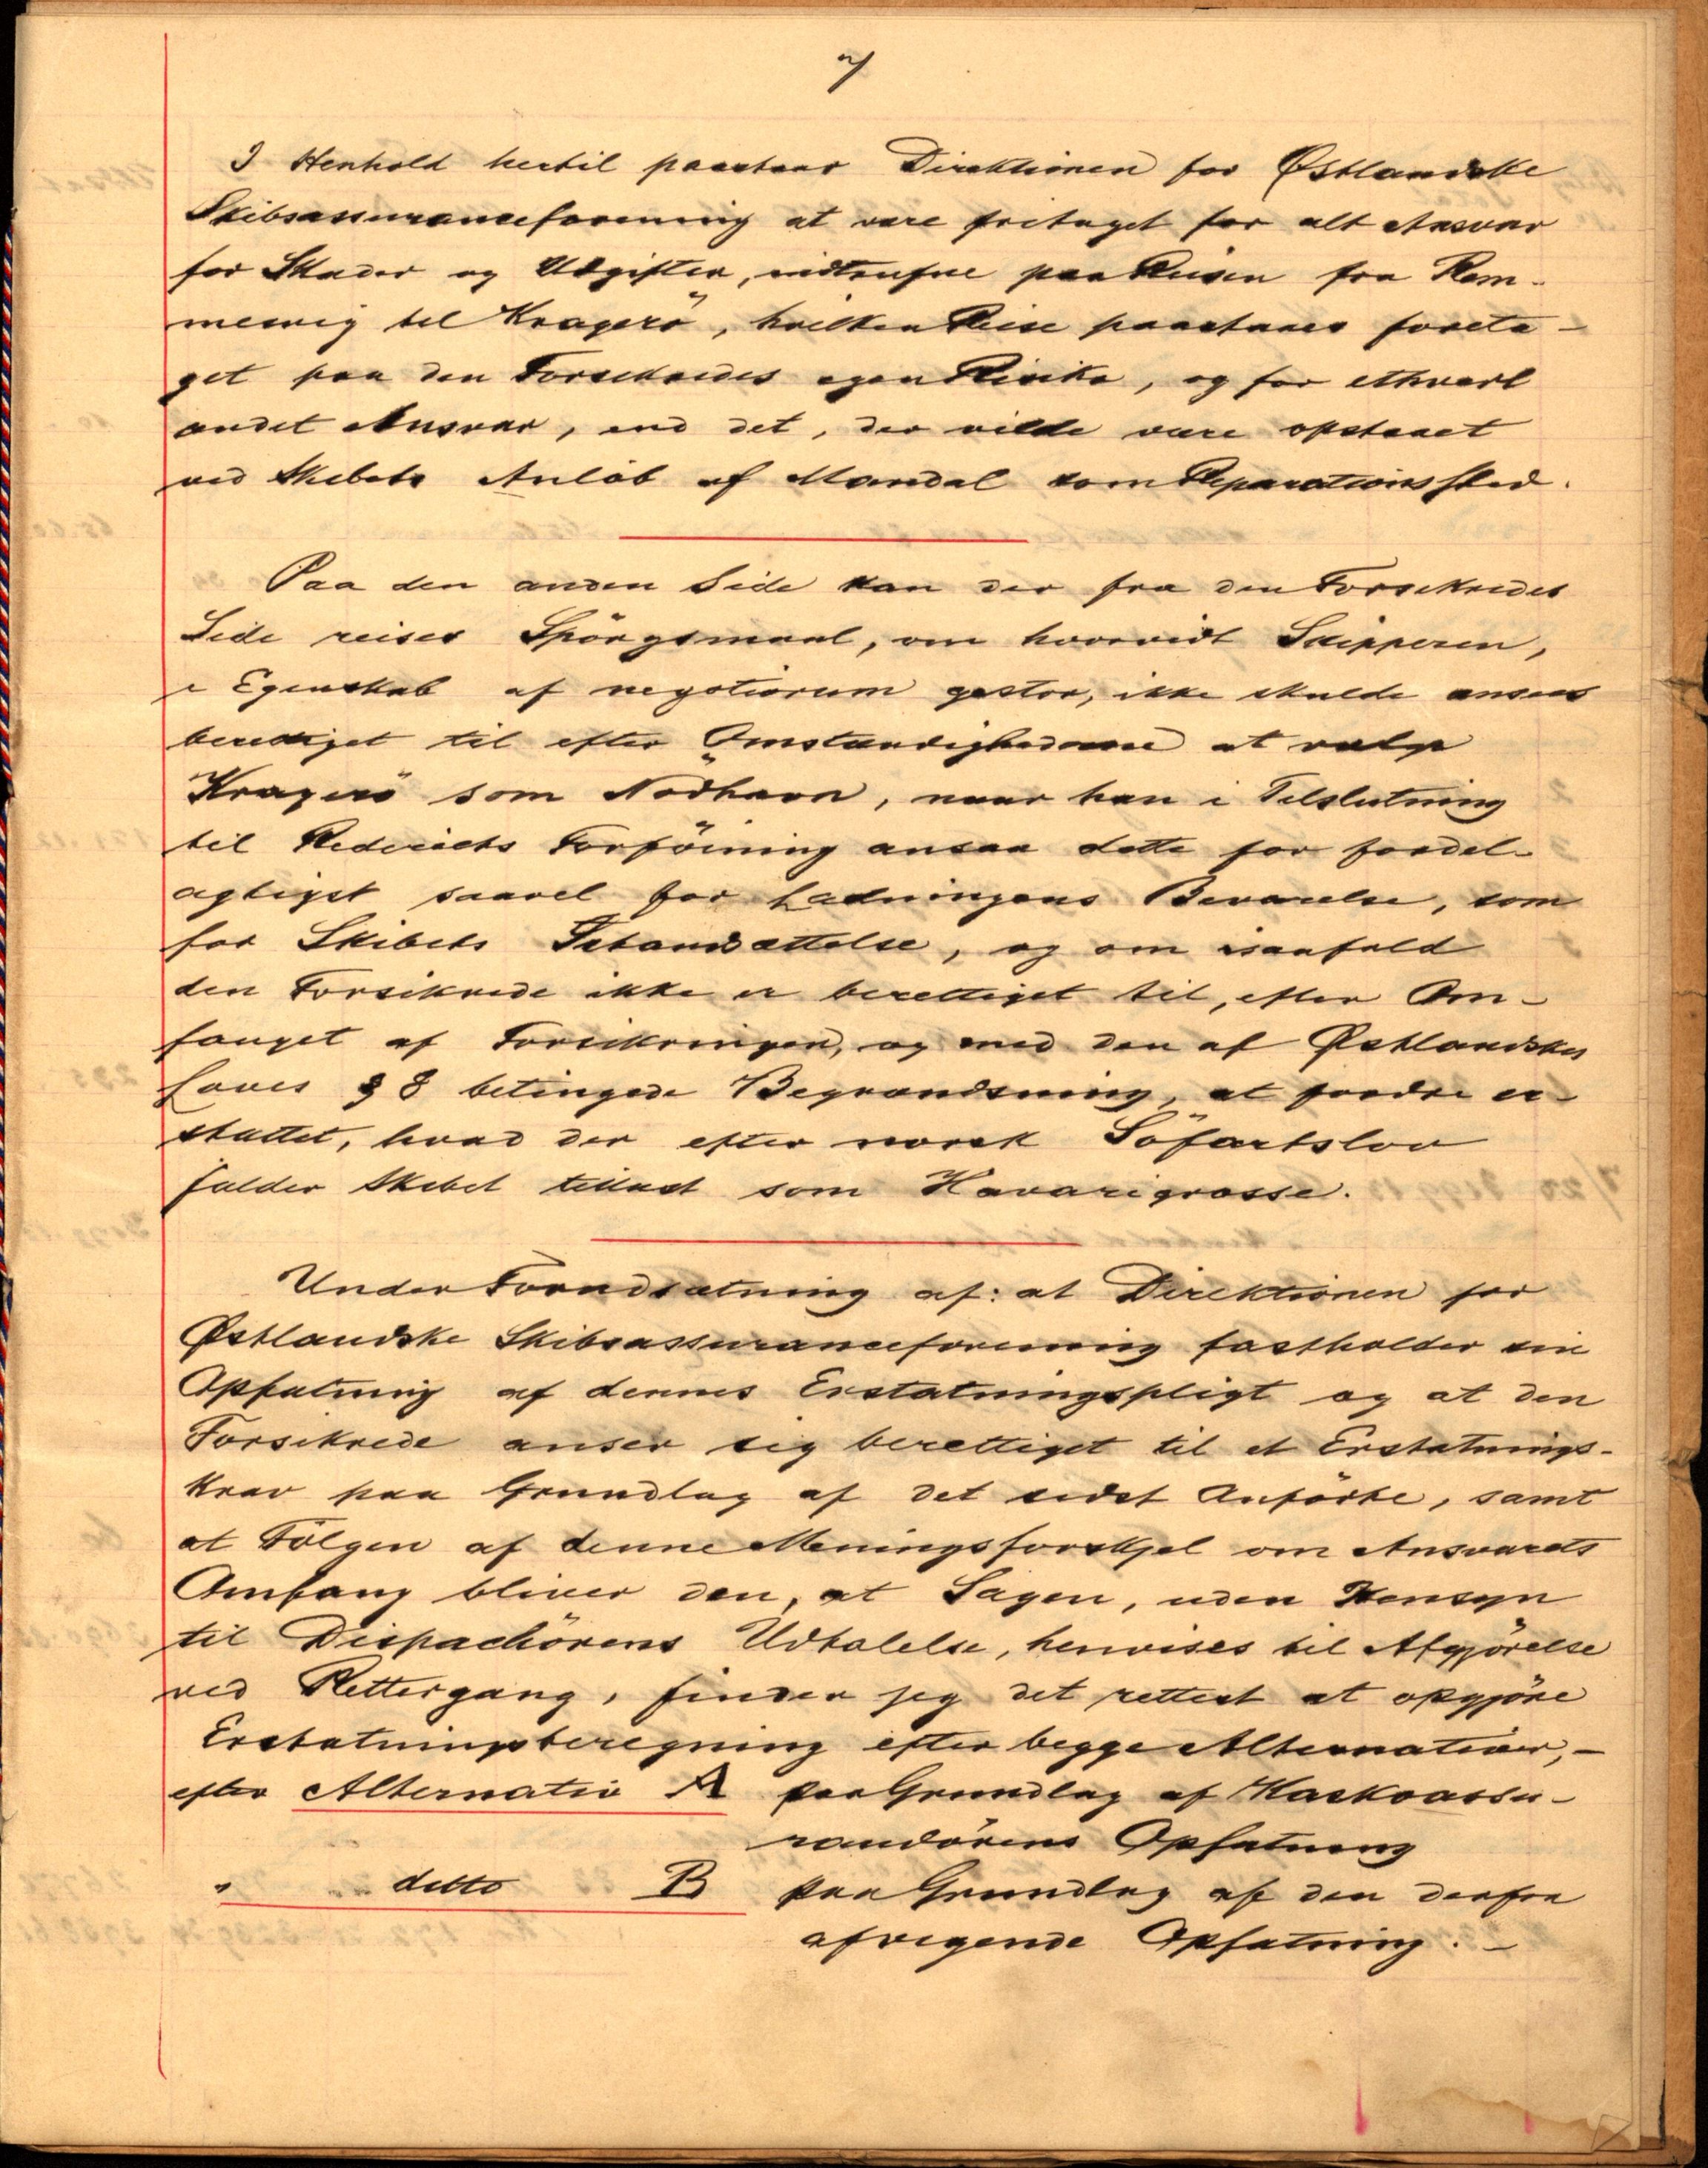 7
I Henhold hertil paastaar Direktionen for Østlandske
Skibsassuranceforening at være fritaget for alt Ansvar
for Skader og Udgifter, indtrufne paa Reisen fra Rem-
mesvig til Kragerö, hvilken Reise paastaaes foreta-
get paa den Forsikredes egen Risiko, og for ethvert
andet Ansvar, end det, der vilde være opstaaet
ved Skibets Anløb af Mandal som Reparationssted.
Paa den anden Side kan der fra den Forsikredes
Side reises Spörgsmaal, om hvorvidt Skipperen,
i Egenskab af negotiorum gestor, ikke skulde ansees
berettiget til efter Omstændighederne at vælge
Kragerö som Nödhavn, naar han i Tilslutning
til Rederiets Forföining ansaa dette for fordel-
agtigst saavel for Ladningens Bevarelse, som
for Skibets Istandsættelse, og om isaafald
den Forsikrede ikke er berettiget til, efter Om-
fanget af Forsikringen, og med den af Østlandskes
Loves § 8 betingede Begrændsning, at fordre er-
stattet, hvad der efter norsk Söfartslov
falder Skibet tillast som Havarigrosse.
Under Forudsætning af: at Direktionen for
Østlandske Skibsassuranceforening fastholder sin
Opfatning af dennes Erstatningspligt og at den
Forsikrede anser sig berettiget til et Erstatnings-
krav paa Grundlag af det sidst Anförte, samt
at Fölgen af denne Meningsforskjel om Ansvarets
Omfang bliver den, at Sagen, uden Hensyn
til Dispachörens Udtalelse, henvises til Afgjörelse
ved Rettergang, finder jeg det rettest at opgjöre
Erstatningsberegning efter begge Alternativer,-
efter Alternativ A paa Grundlag af Kaskoassu-
randörens Opfatning
" detto B paa Grundlag af den derfra
afvigende Opfatning.-